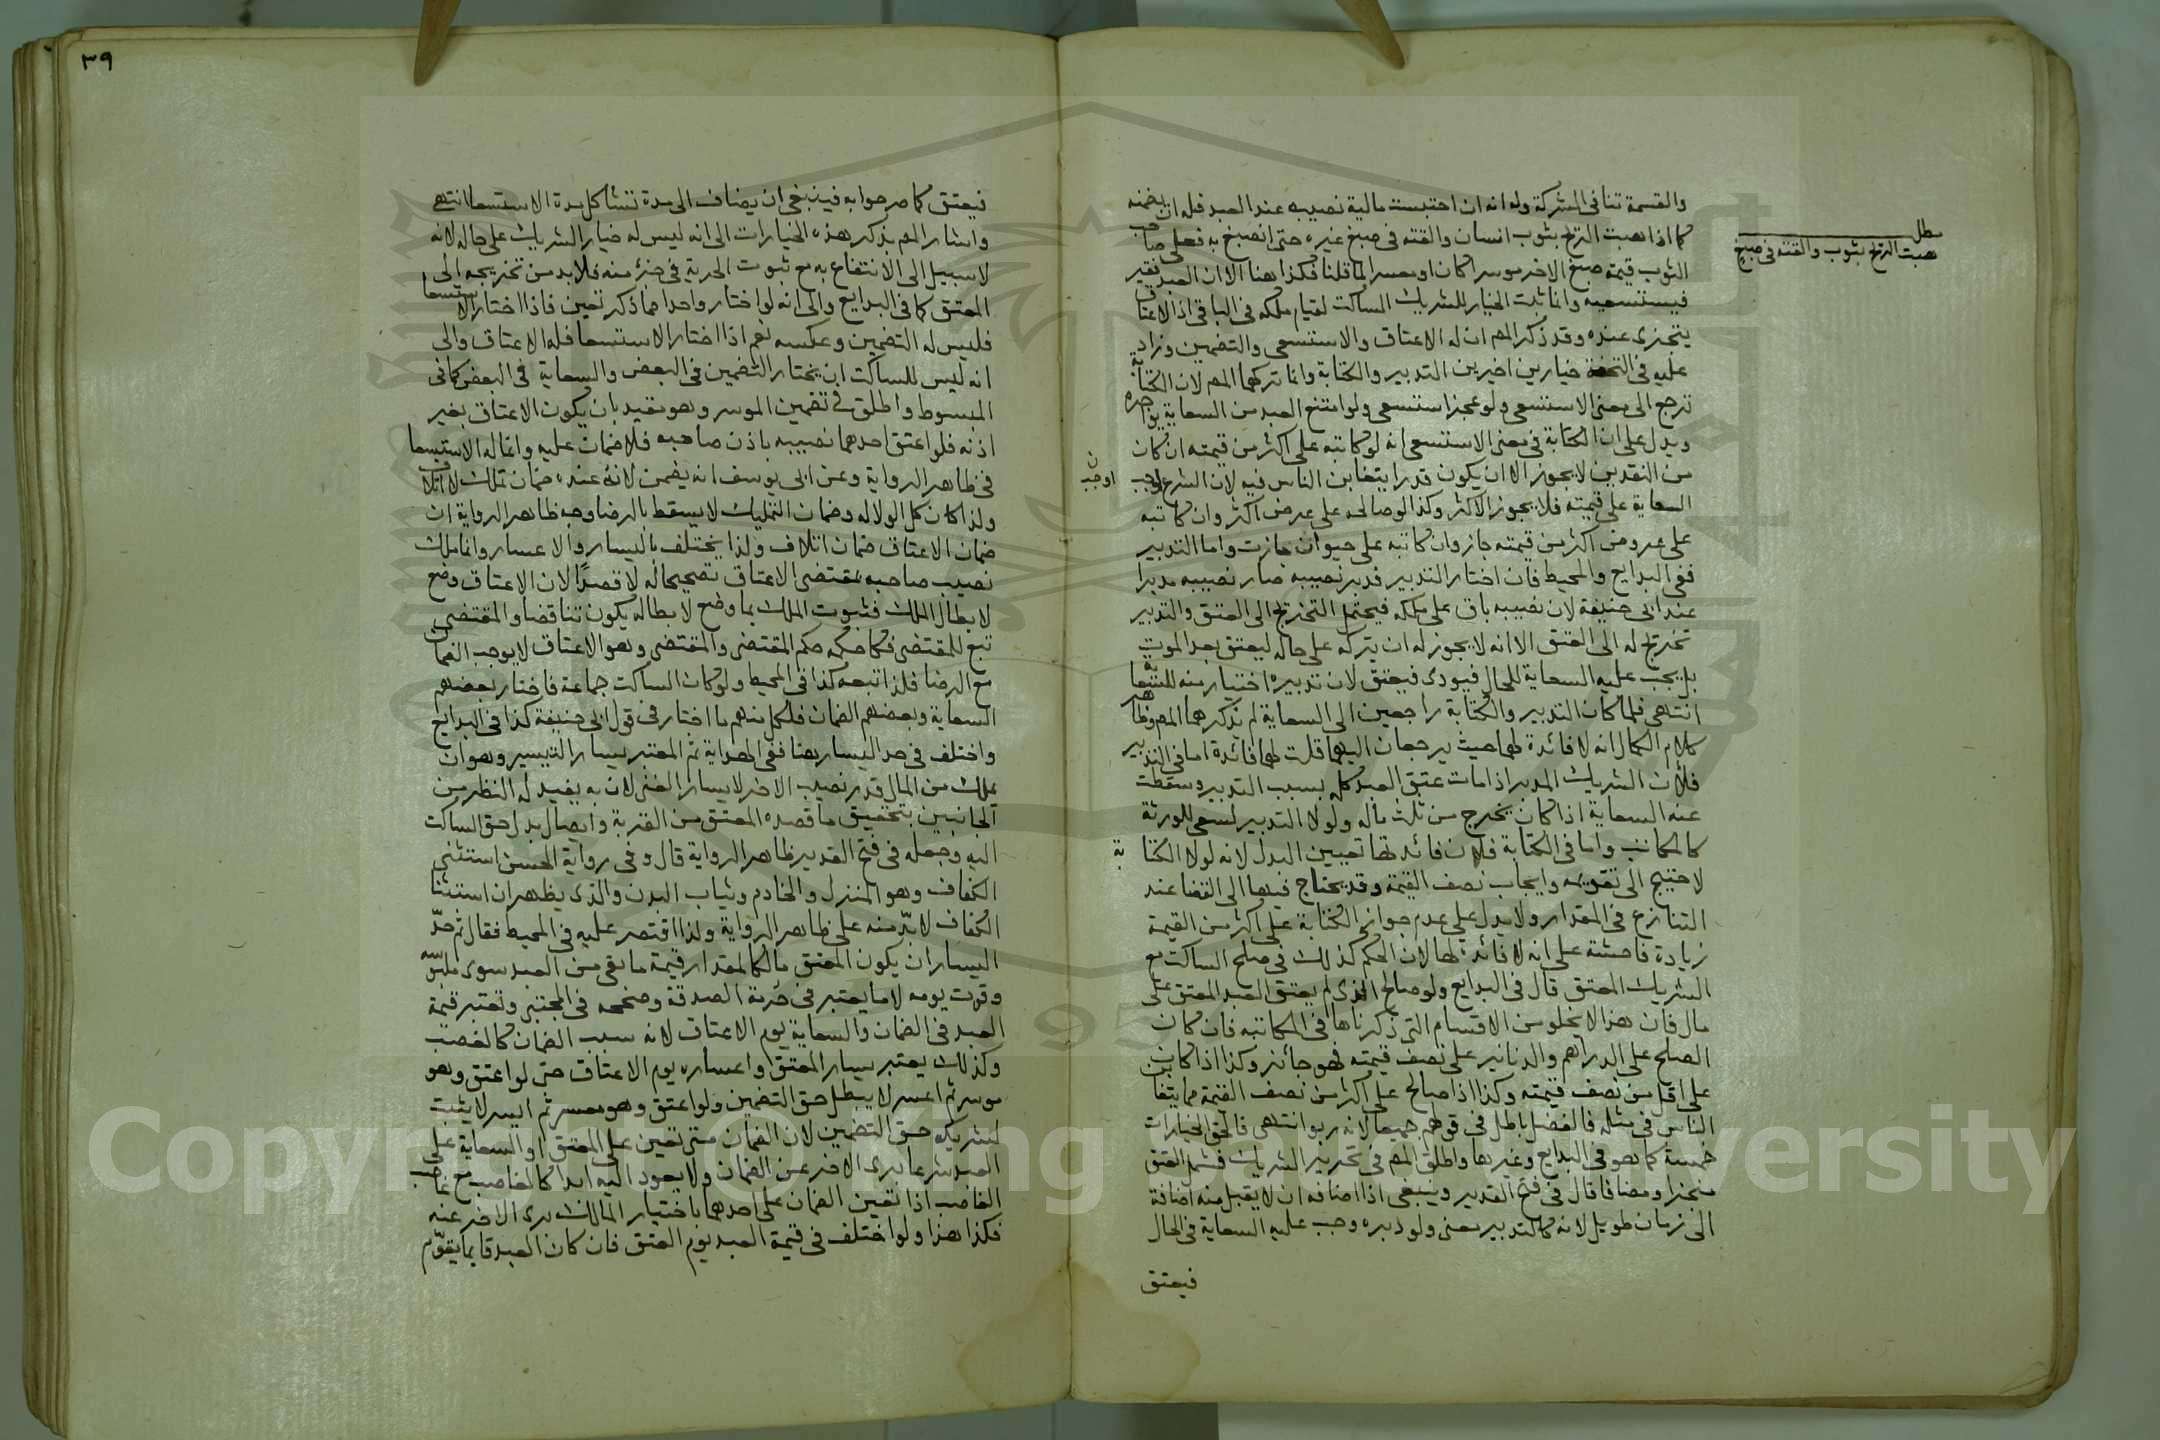 والقسمة تنافى الشركة وله انه ان احتبست مالية نصيبه عند العبد فله ان يضمنه
كما اذا هبت الريح بثوب انسان والقته فى صبغ غيره حتى انصبغ به فعلى صاحب
الثوب قيمة صبغ الاخر موسرا كان او معسرا لما قلنا فكذا هنا الا ان العبد فقير
فيستسعيه وانما ثبت الخيار للشريك الساكت لقيام ملكه فى الباقى اذ الاعتاق
يتجزى عنده وقد ذكر المص ان له الاعتاق والاستسعى والتضمين وزاد
عليه فى التحفة خيارين اخيرين التدبير والكتابة وانما تركهما المص لان الكتابة
ترجع الى معنى الاستسعى ولو عجز استسعى ولو امتنع العبد من السعاية يواجره
ويدل على ان الكتابة فى معنى الاستسعى انه لو كاتبه على اكثر من قيمته ان كان
من النقدين لا يجوز الا ان يكون قدرا يتغابن الناس فيه لان الشرع اوجب
السعاية على قيمته فلا يجوز الاكثر وكذا لو صالحه على عرض اكثر وان كاتبه
على عروض اكثر من قيمته جاز وان كاتبه على حيوان جازت واما التدبير
ففى البدايع والمحيط فان اختار التدبير فدبر نصيبه صار نصيبه مدبرا
عند ابى حنيفة لان نصيبه باق على ملكه فيحتمل التخريج الى العتق والتدبير
تخريج له الى العتق الا انه لا يجوز له ان يتركه على حاله ليعتق بعد الموت
بل يجب عليه السعاية للحال فيودى فيعتق لان تدبيره اختيار منه للسعاية
انتهى فلما كان التدبير والكتابة راجعين الى السعاية لم يذكرهما المص وظاهر
كلام الكمال انه لا فائدة لهما حيث يرجعان اليهما قلت لهما فائدة اما فى التدبير
فلأن الشريك المدبر اذا مات عتق العبد كله بسبب التدبير وسقطت
عنه السعاية اذا كان يخرج من ثلث ماله ولولا التدبير لسعى للورثة
كالمكاتب واما فى الكتابة فلان فائدتها تعيين البدل لانه لولا الكتابة
لاحتيج الى تقويمه وايجاب نصف القيمة وقد يحتاج فيها الى القضا عند
التنازع فى المقدار ولا يدل على عدم جواز الكتابة على اكثر من القيمة
زيادة فاحشة على انه لا فائدة لها لان الحكم كذلك فى صلح الساكت مع
الشريك المعتق قال فى البدايع ولو صالح الذى لم يعتق العبد المعتق على
مال فان هذا لا يخلو من الاقسام التى ذكرناها فى المكاتبه فان كان
الصلح على الدراهم والدنانير على نصف قيمته فهو جائز وكذا اذا كان
على اقل من نصف قيمته وكذا اذا صالح على اكثر من نصف القيمة مما يتغابن
الناس فى مثله فالفضل باطل فى قولهم جميعا لانه ربو انتهى فالحق الخيارات
خمسة كما هو فى البدايع وغيرها واطلق المص فى تحرير الشريك فشمل العتق
منجزا ومضافا قال فى فتح القدير وينبغى اذا اضافه ان لا يقبل منه اضافة
الى زمان طويل لانه كالتدبير معنى ولو دبره وجب عليه السعاية فى الحال
فيعتق
مطل
هبت الريح بثوب والقته فى صبغ
ن
اوجب
بة
٣٩
فيعتق كما صرحوا به فينبغى ان يضاف الى مدة تشاكل مدة الاستسعا انتهى
واشار المص بذكر هذه الخيارات الى انه ليس له خيار الشريك على حاله لانه
لا سبيل الى الانتفاع به مع ثبوت الحرية فى جزء منه فلا بد من تخريجه الى
العتق كما فى البدايع والى انه لو اختار واحدا مما ذكر تعين فاذا اختار الاستسعا
فليس له التضمين وعكسه نعم اذا اختار الاستسعا فله الاعتاق والى
انه ليس للساكت ان يختار التضمين فى البعض والسعاية فى البعض كما فى
المبسوط واطلق فى تضمين الموسر وهو مقيد بان يكون الاعتاق بغير
اذنه فلو اعتق احدهما نصيبه باذن صاحبه فلا ضمان عليه وانما له الاستسعا
فى ظاهر الرواية وعن ابى يوسف انه يضمن لانه عنده ضمان تملك لا اتلاف
ولذا كان كل الولا له وضمان التمليك لا يسقط بالرضا وجه ظاهر الرواية ان
ضمان الاعتاق ضمان اتلاف ولذا يختلف باليسار والاعسار وانما ملك
نصيب صاحبه بمقتضى الاعتاق تصحيحا له لا قصدًا لان الاعتاق وضع
لابطال الملك فثبوت الملك بما وضع لابطاله يكون تناقضا والمقتضى
تبع للمقتضى فكان حكمه حكم المقتضى والمقتضى وهو الاعتاق لا يوجب الضمان
مع الرضا فلذا تبعه كذا فى المحيط ولو كان الساكت جماعة فاختار بعضهم
السعاية وبعضهم الضمان فلكل منهم ما اختار فى قول ابى حنيفة كذا فى البدايع
واختلف فى حد اليسار هنا ففى الهداية ثم المعتبر يسار التيسير وهو ان
يملك من المال قدر نصيب الاخر لا يسار الغنى لان به يفيد له النظر من
الجانبين بتحقيق ما قصده المعتق من القربة وايصال بدل حق الساكت
اليه وجعله فى فتح القدير ظاهر الرواية قال وفى رواية الحسن استثنى
الكفاف وهو المنزل والخادم وثياب البدن والذى يظهر ان استثنا
الكفاف لا بدّ منه على ظاهر الرواية ولذا اقتصر عليه فى المحيط فقال ثم حدّ
اليسار ان يكون المعتق مالكا لمقدار قيمة ما بقى من العبد سوى ملبوسه
وقوت يومه لا ما يعتبر فى حرمة الصدقة وصححه فى المجتبى وتعتبر قيمة
العبد فى الضمان والسعاية يوم الاعتاق لانه سبب الضمان كالغصب
وكذلك يعتبر يسار المعتق واعساره يوم الاعتاق حتى لو اعتق وهو
موسر ثم اعسر لا يبطل حق التضمين ولو اعتق وهو معسر ثم ايسر لا يثبت
لشريكه حق التضمين لان الضمان متى تعين على المعتق او السعاية على
العبد شرعا برى الاخر عن الضمان ولا يعود اليه ابدا كالغاصب مع غاصب
الغاصب اذا تعين الضمان على احدهما باختيار المالك برى الاخر عنه
فكذا هذا ولو اختلف فى قيمة العبد يوم العتق فان كان العبد قايما يقوّم
Copyright © King Saud University